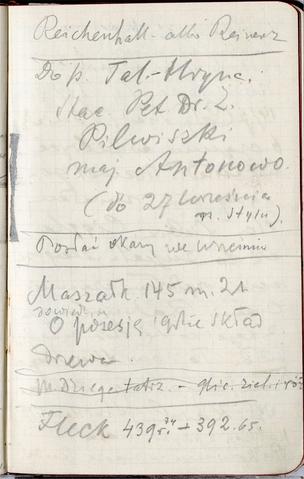 Reichenhall albo Reinerz
Do p. Tal-Hrync.
stac. Pet. Dr. Ż.
Pilwiszki
maj. Antonowo.
(do 27 września
n. stylu).
Posłać we wrześniu
Marszałk. 145 m. 21
dowiedz.
O poezję gdzie skład
drzewa.
Fleck 439 + 392.65.